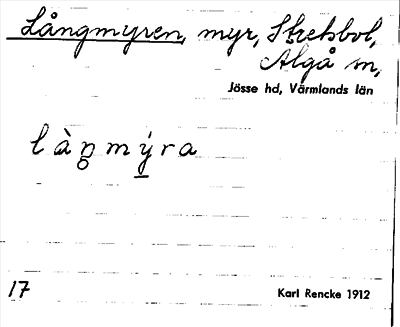 Långmyren, myr, Stretsbol,
Älgå sn,
Jösse hd, Värmlands län
l à ŋ m ý r a
17
Karl Rencke 1912